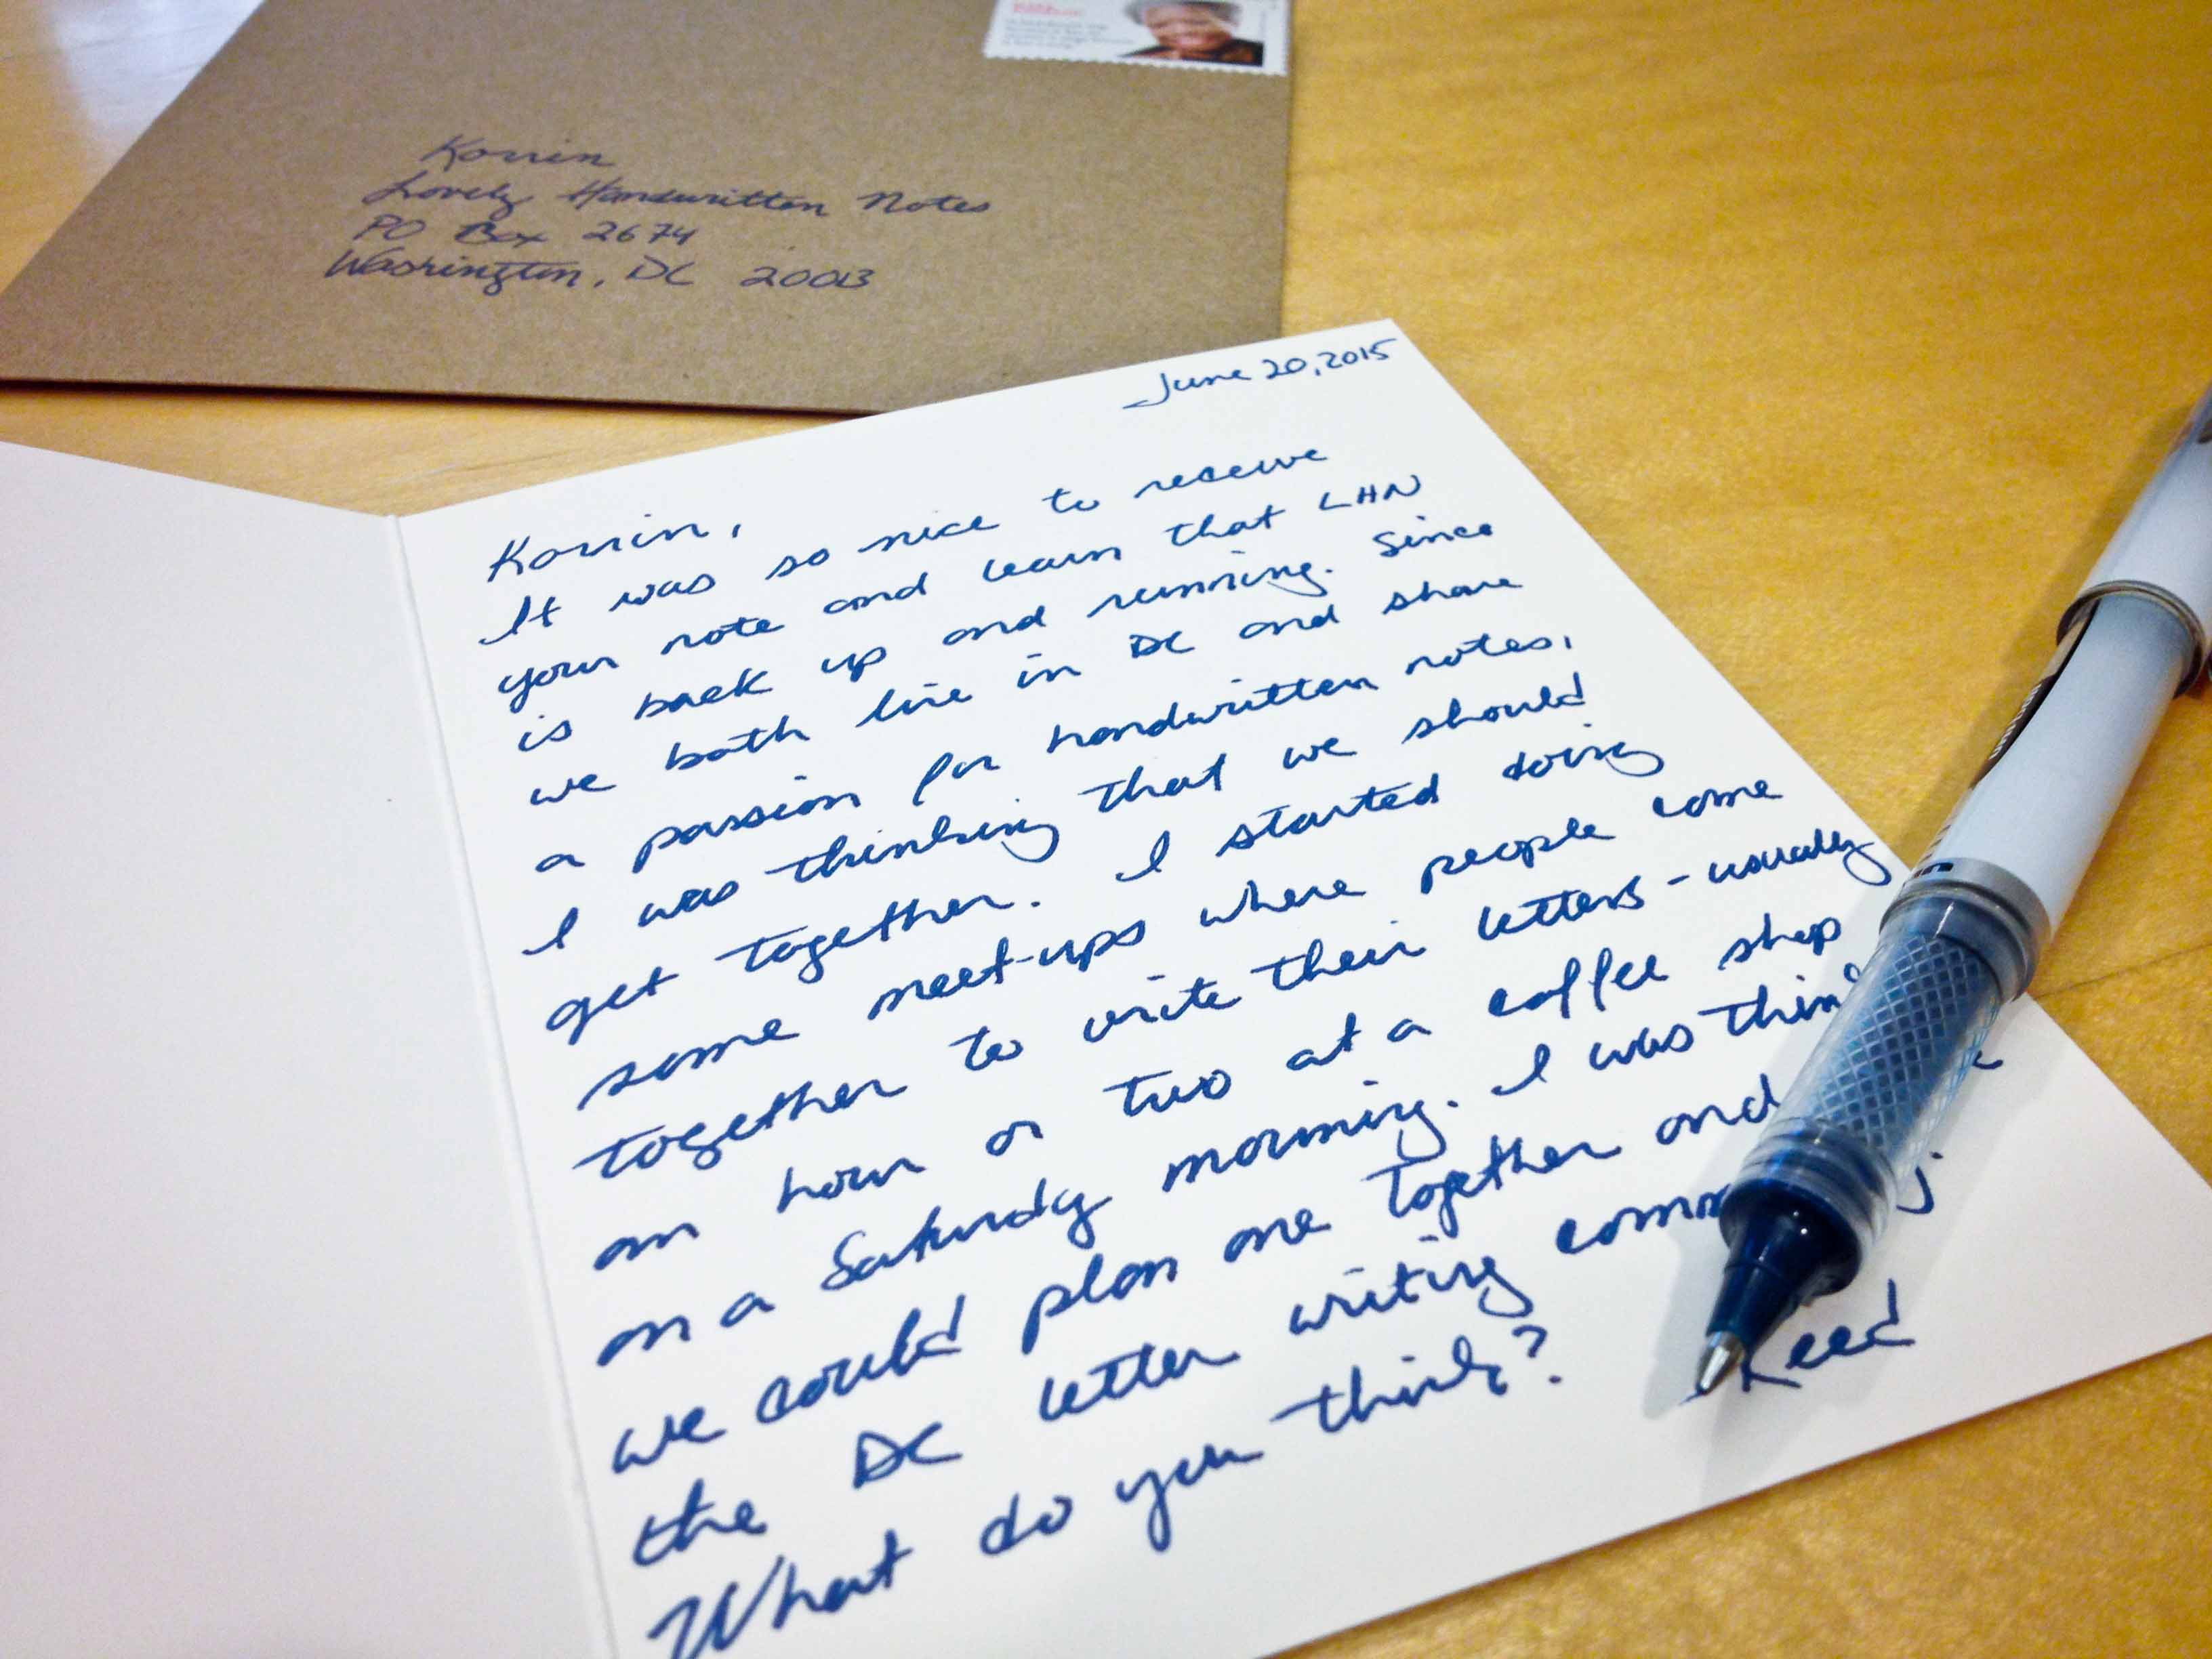 Korrin
Lovely Handwritten Notes
PO Box 2674
Washington, DC 20013
June 20, 2015
Korrin,
It was so nice to receive
your note and learn that LHN
is back up and running. Since
we both live in DC and share
a passion for handwritten notes,
I was thinking that we should
get together. I started doing
some meet-ups where people come
together to write their letters - usually
an hour or two at a coffee shop
on a Saturday morning. I was
we could plan one together and
the DC letter writing
What do you think?
Reed